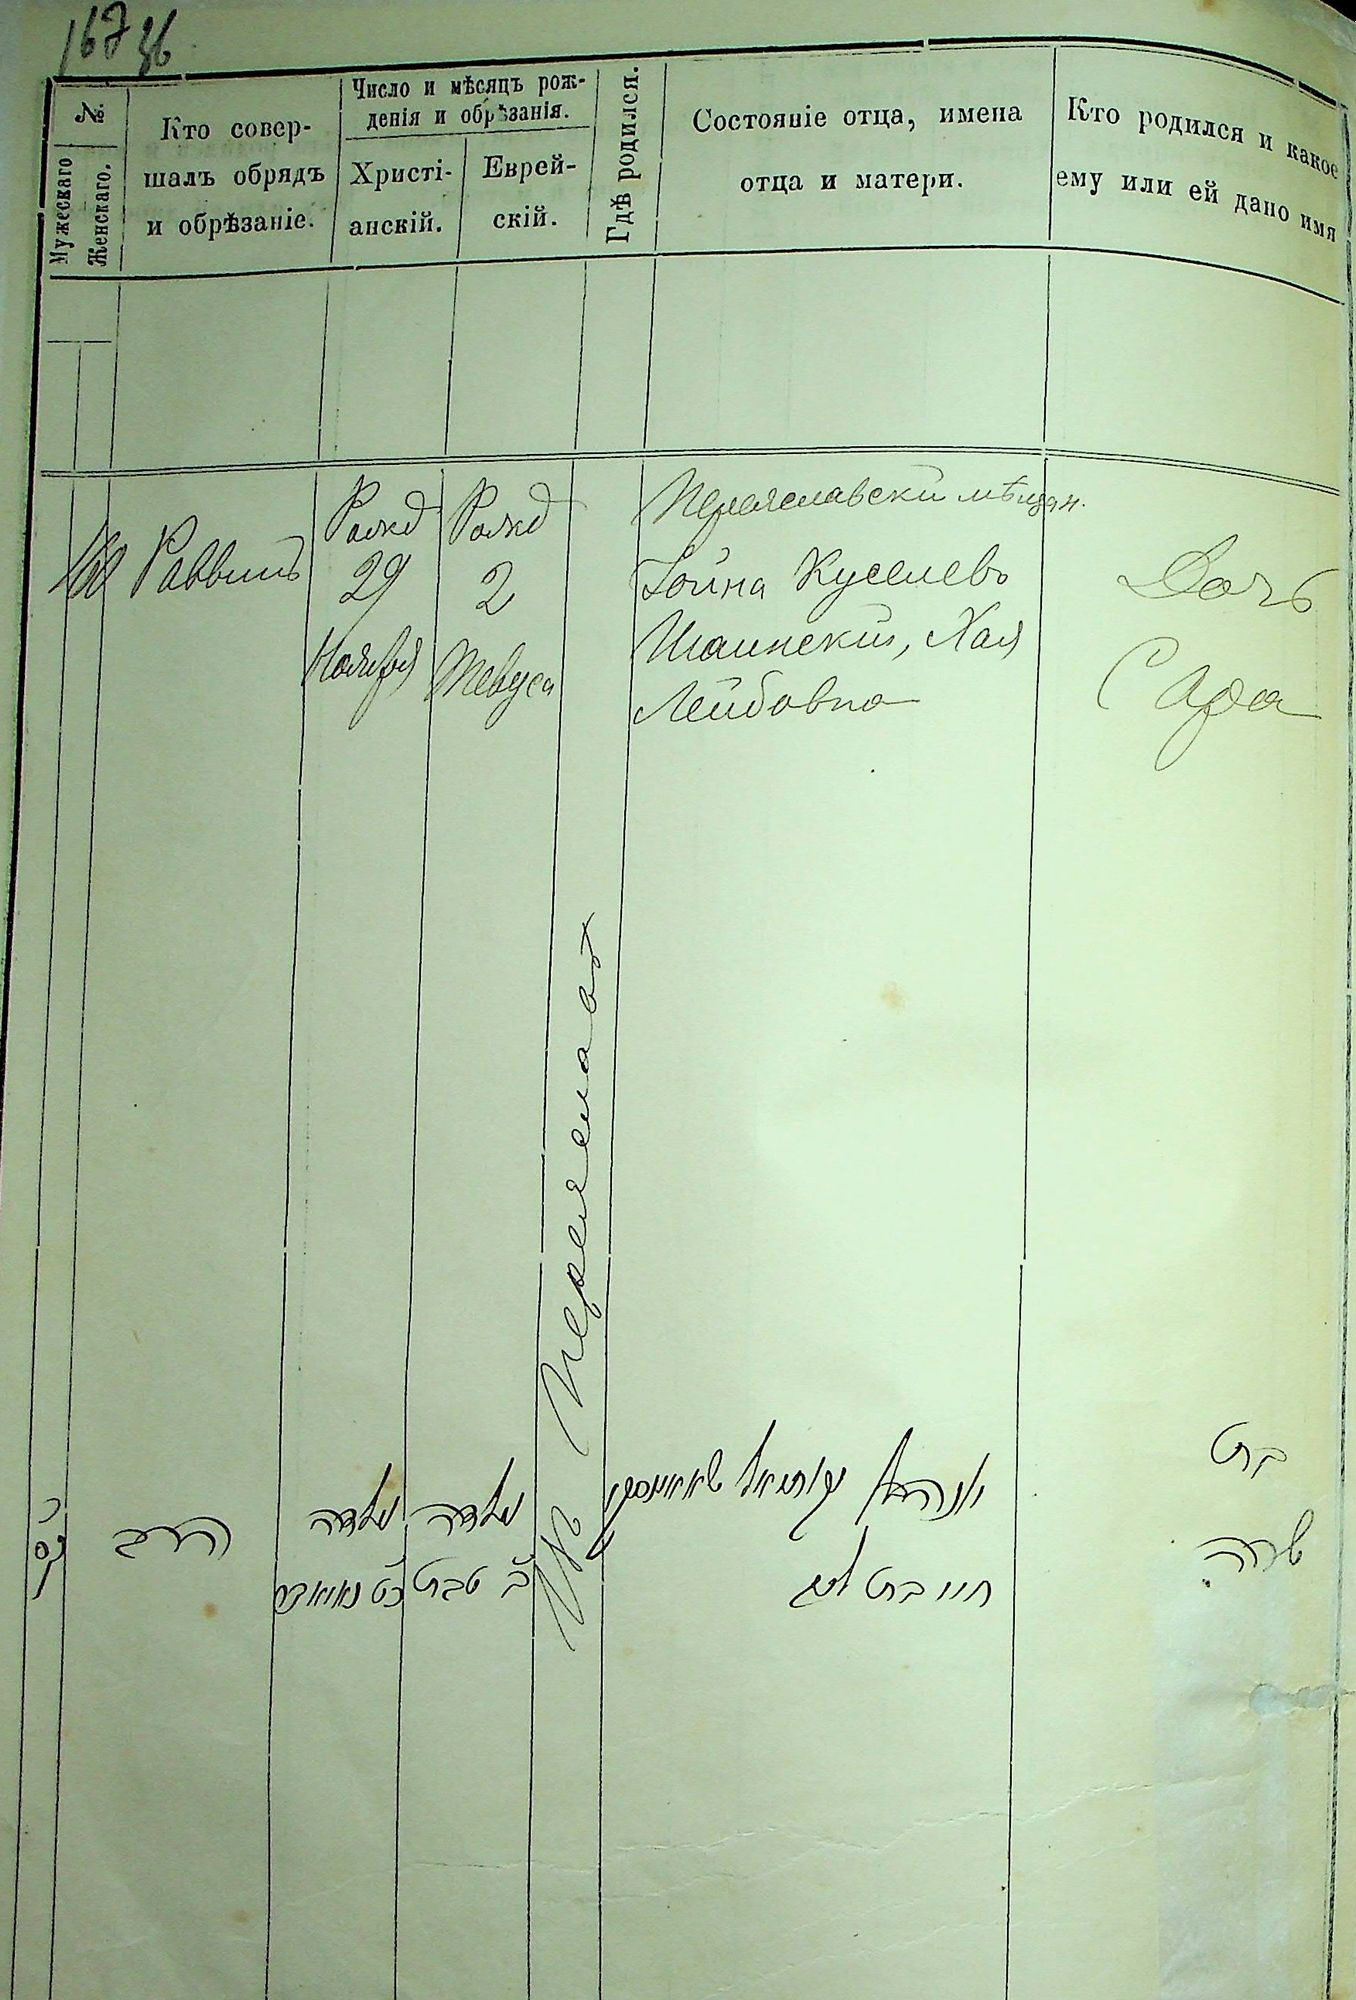 167 36
№
Мужескаго
Женскаго.
Кто совер-
шалъ обрядъ
и обрѣзаніе.
Число и мѣсяцъ рож-
денія и обрѣзанія.
Христі-
анскій.
Еврей-
скій.
Гдѣ родился.
Состояніе отца, имена
отца и матери.
Кто родился и какое
ему или ей дано имя
Раввинъ
Рожд
29
Ноября
Рожд
2
Тевуса
Въ Переяславѣ
Переяславскій мѣщан.
Іойна Куселевъ
Шаинскій, Хая
Лейбовна
Дочь
Сара
הרב
נולדה
כ״ט נאיאבר
נולדה
ב׳ טבת
חיי בת ליב
בת
שרה